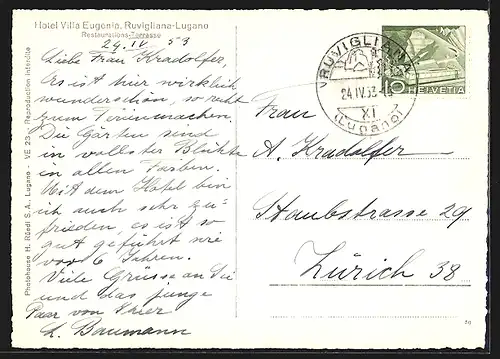 Hotel Villa Eugenia, Ruvigliana-Lugano
Restaurations-Terrasse
24.IV 53
Liebe Frau Kradolfer,
Es ist hier wirklich
wunderschön, so recht
zum Ferienmachen.
Die Gärten sind
in vollster Blühte
in allen Farben.
Mit dem Hotel bin
ich auch sehr zu-
frieden, es ist so
gut geführt wie
vor 6 Jahren.
Viele Grüsse an Sie
und das junge
Paar von Ihrer
A. Baumann
Photohouse H. Rüedi S. A., Lugano - VE 23 - Reproduction interdite
RUVIGLIANA
24.IV.53
XI
(Lugano)
10 HELVETIA
Frau
A. Kradolfer
Staubstrasse 29
Zürich 38